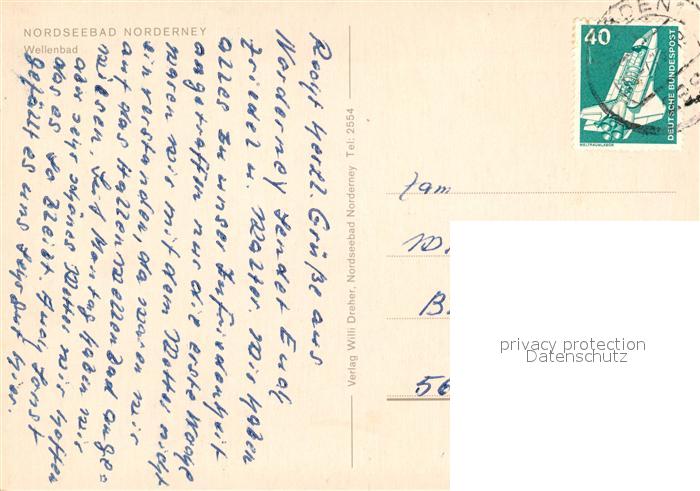 NORDSEEBAD NORDERNEY
Wellenbad
Recht herzl. Grüße aus
Norderney sendet Euch
Friedel u. Walter. Wir haben
alles zu unser Zufriedenheit
angetroffen nur die erste Woche
waren wir mit dem Wetter nicht
einverstanden, da waren wir
auf das Hallenwellenbad ange=
wiesen. Seit Montag haben wir
aber sehr schönes Wetter wir hoffen
das es so bleibt. Auch sonst
gefällt es uns sehr gut hier.
Verlag Willi Dreher, Nordseebad Norderney Tel: 2554
40
DEUTSCHE BUNDESPOST
WELTRAUMLABOR
Fam
56
privacy protection
Datenschutz